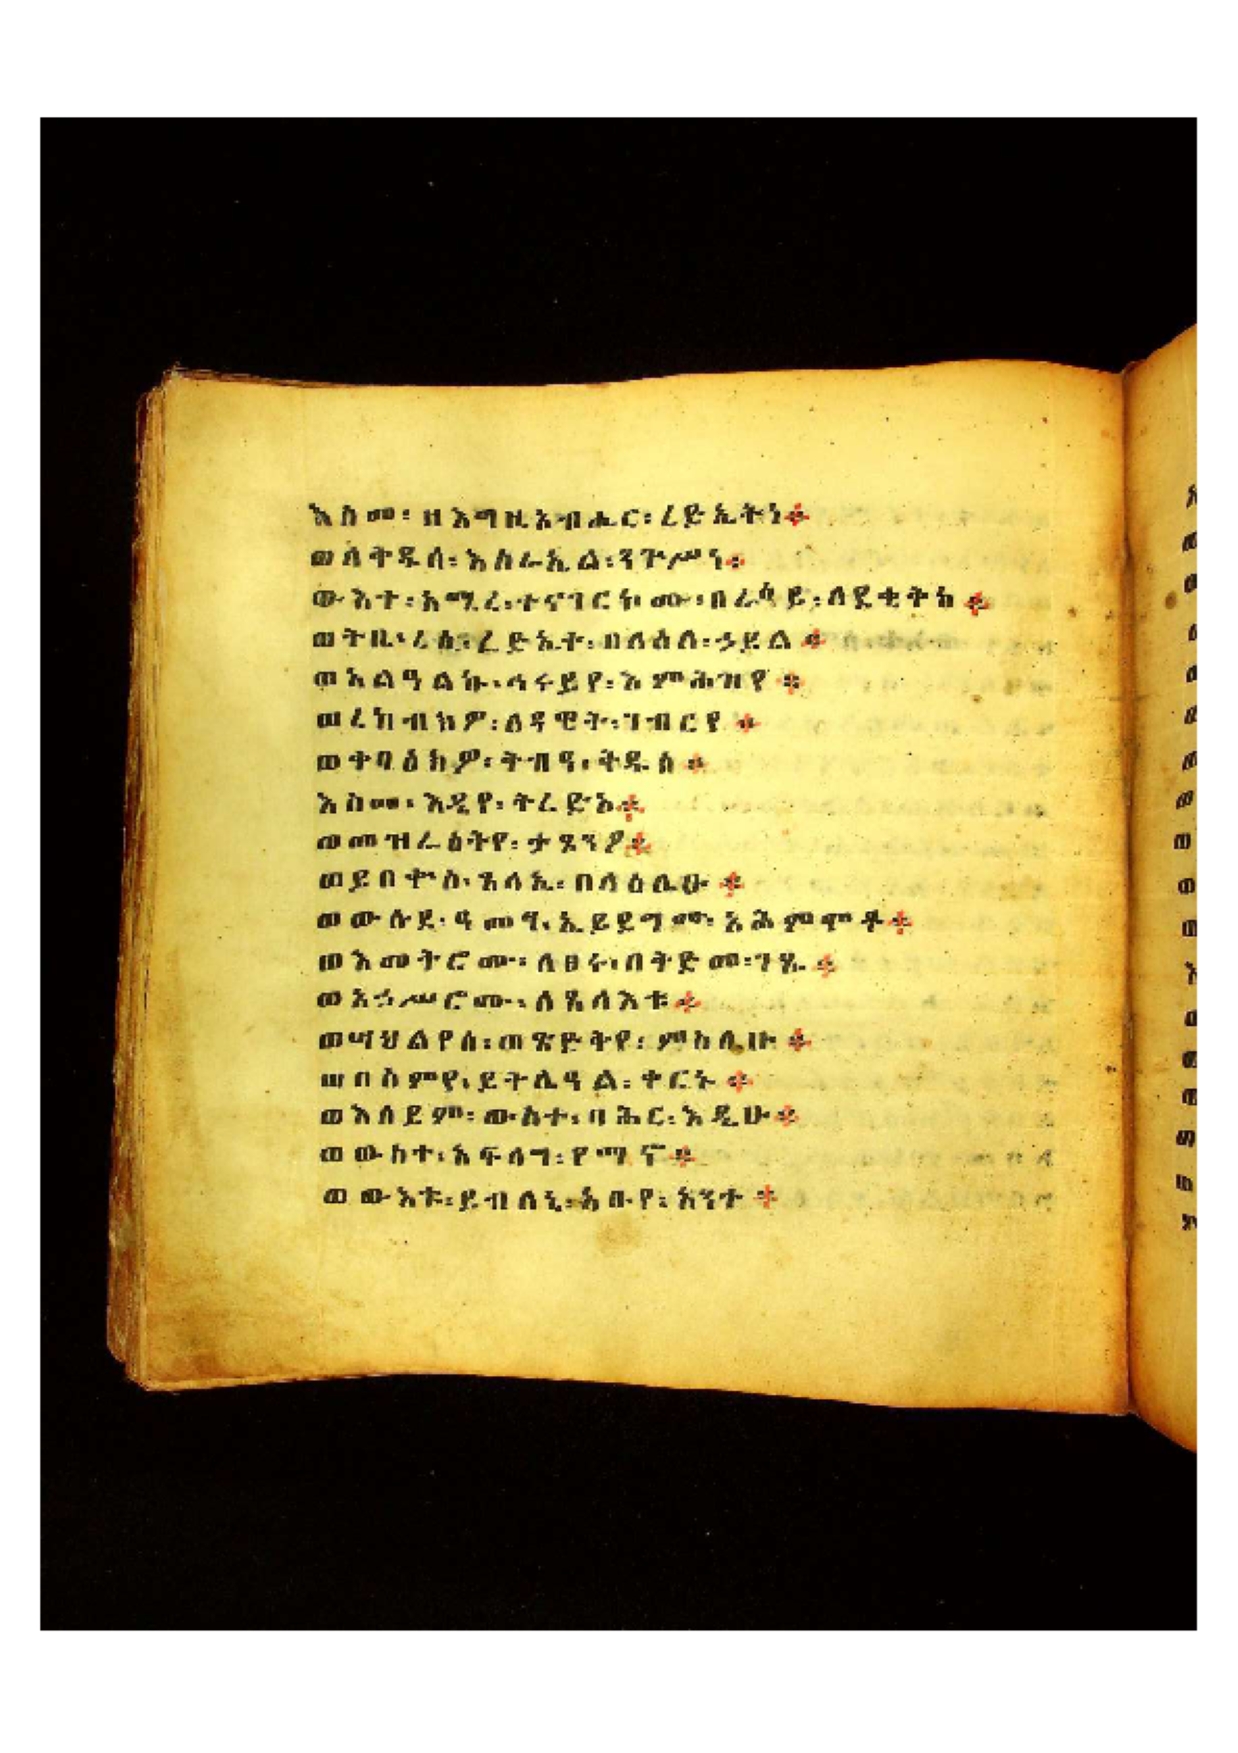 እስመ፡ ዘእግዚአብሔር፡ ረድኤትነ።
ወለቅዱሰ፡ እስራኤል፡ ንጉሥነ።
ውእተ፡ አሚረ፡ ተናገርኮሙ፡ በራእይ፡ ለደቂቅከ።
ወትቤ፡ ረሰይኩ፡ ረድኤተ፡ በላዕለ፡ ኃይል።
ወአልዓልኩ፡ ኅሩይየ፡ እምሕዝብየ።
ወረከብክዎ፡ ለዳዊት፡ ገብርየ።
ወቀባዕክዎ፡ ቅብዓ፡ ቅዱሰ።
እስመ፡ እዴየ፡ ትረድኦ።
ወመዝራዕትየ፡ ታጸንዖ።
ወይበቍዕ፡ ጸላኢ፡ በላዕሌሁ።
ወውሉደ፡ ዓመፃ፡ ኢይደግሙ፡ አሕምሞቶ።
ወእመትሮሙ፡ ለፀሩ፡ በቅድመ፡ ገጹ።
ወአኀሥሮሙ፡ ለጸላእቱ።
ወሣህልየሰ፡ ወጽድቅየ፡ ምስሌሁ።
ወበስምየ፡ ይትሌዓል፡ ቀርኑ።
ወእሰይም፡ ውስተ፡ ባሕር፡ እዴሁ።
ወውስተ፡ አፍላግ፡ የማኖ።
ወውእቱ፡ ይብለኒ፡ አቡየ፡ አንተ።